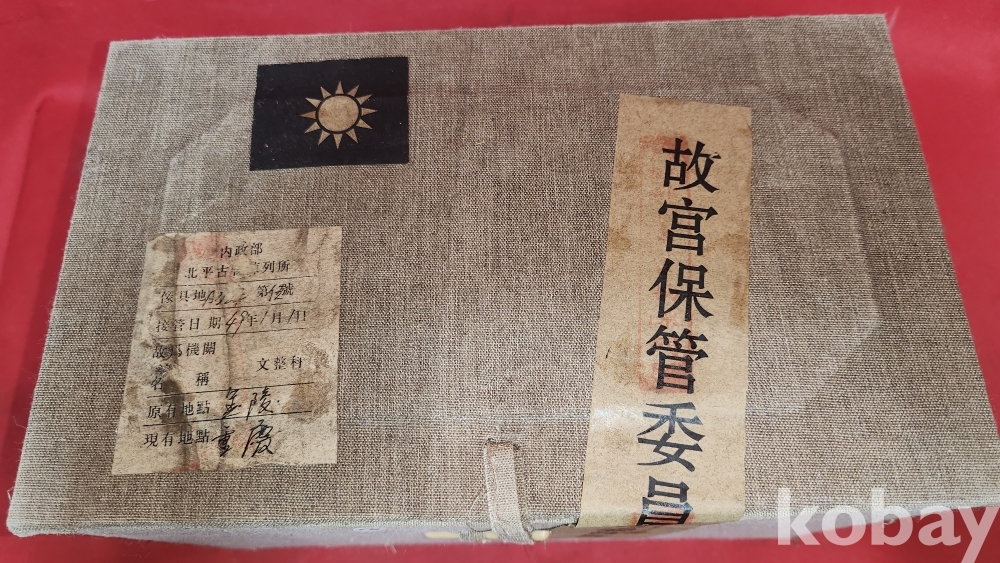 內政部
北平古 列所
傢具地 第 號
接管日期 49年1月1日
機關
文整科
名 稱
原有地點 金陵
現有地點 重慶
故宮保管委員
kobay